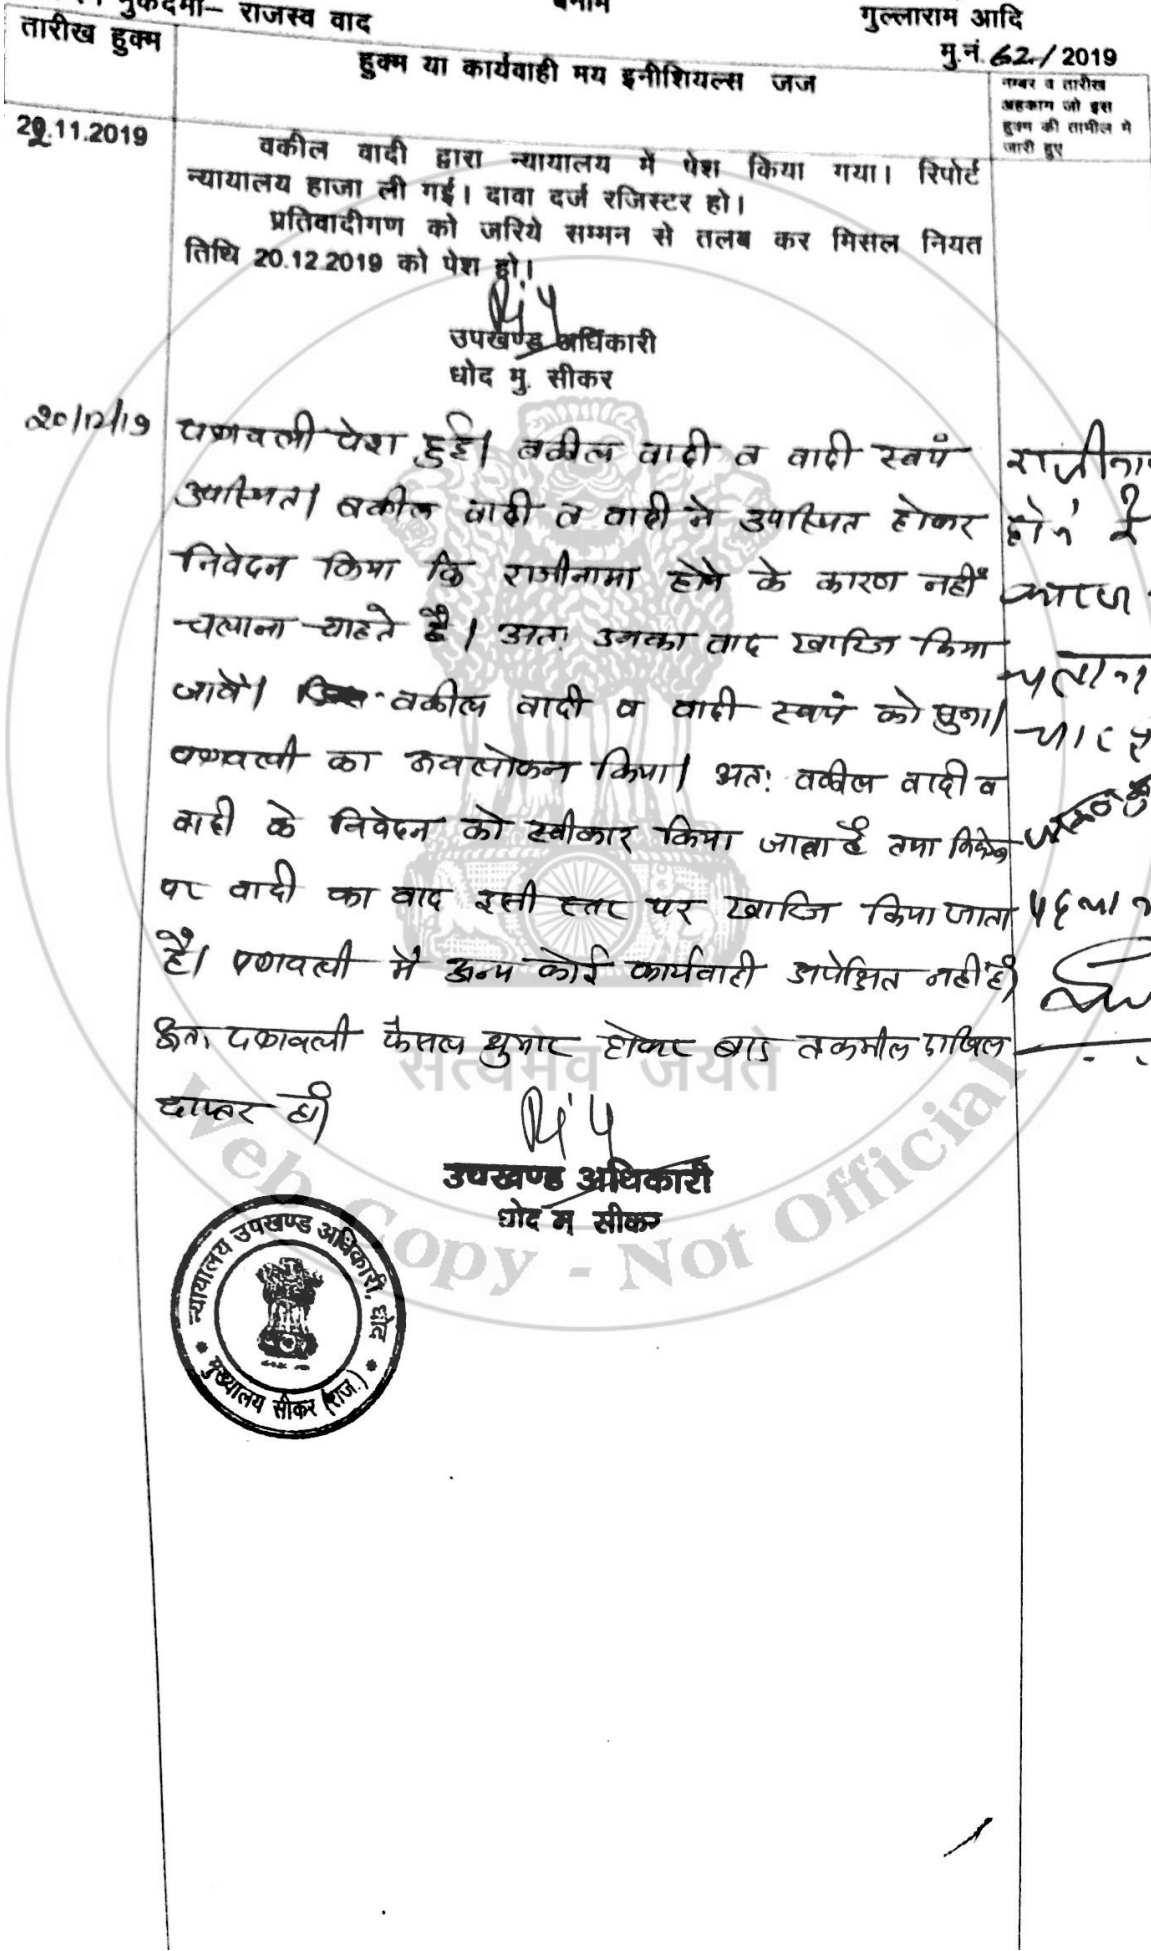 मुकदमा– राजस्व वाद
बनाम
गुल्लाराम आदि
मु.नं. 62/2019
तारीख हुक्म
हुक्म या कार्यवाही मय इनीशियल्स जज
नम्बर व तारीख
अहकाम जो इस
हुक्म की तामील मे
जारी हुए
20.11.2019
वकील वादी द्वारा न्यायालय में पेश किया गया। रिपोर्ट
न्यायालय हाजा ली गई। दावा दर्ज रजिस्टर हो।
प्रतिवादीगण को जरिये सम्मन से तलब कर मिसल नियत
तिथि 20.12.2019 को पेश हो।
उपखण्ड अधिकारी
धोद मु. सीकर
20/12/19
पत्रावली पेश हुई। वकील वादी व वादी स्वयं
उपस्थित। वकील वादी व वादी ने उपस्थित होकर
निवेदन किया कि राजीनामा होने के कारण नहीं
चलाना चाहते है। अतः उनका वाद खारिज किया
जावे। वकील वादी व वादी स्वयं को सुना।
पत्रावली का अवलोकन किया। अतः वकील वादी व
वादी के निवेदन को स्वीकार किया जाता है तथा
पर वादी का वाद इसी स्तर पर खारिज किया जाता
है। पत्रावली मे अन्य कोई कार्यवाही अपेक्षित नही है।
अतः पत्रावली फैसल शुमार होकर बाद तकमील दाखिल
दफ्तर हो।
उपखण्ड अधिकारी
धोद मु. सीकर
सत्यमेव जयते
Web Copy - Not Official
न्यायालय उपखण्ड अधिकारी, धोद
मुख्यालय सीकर (राज.)